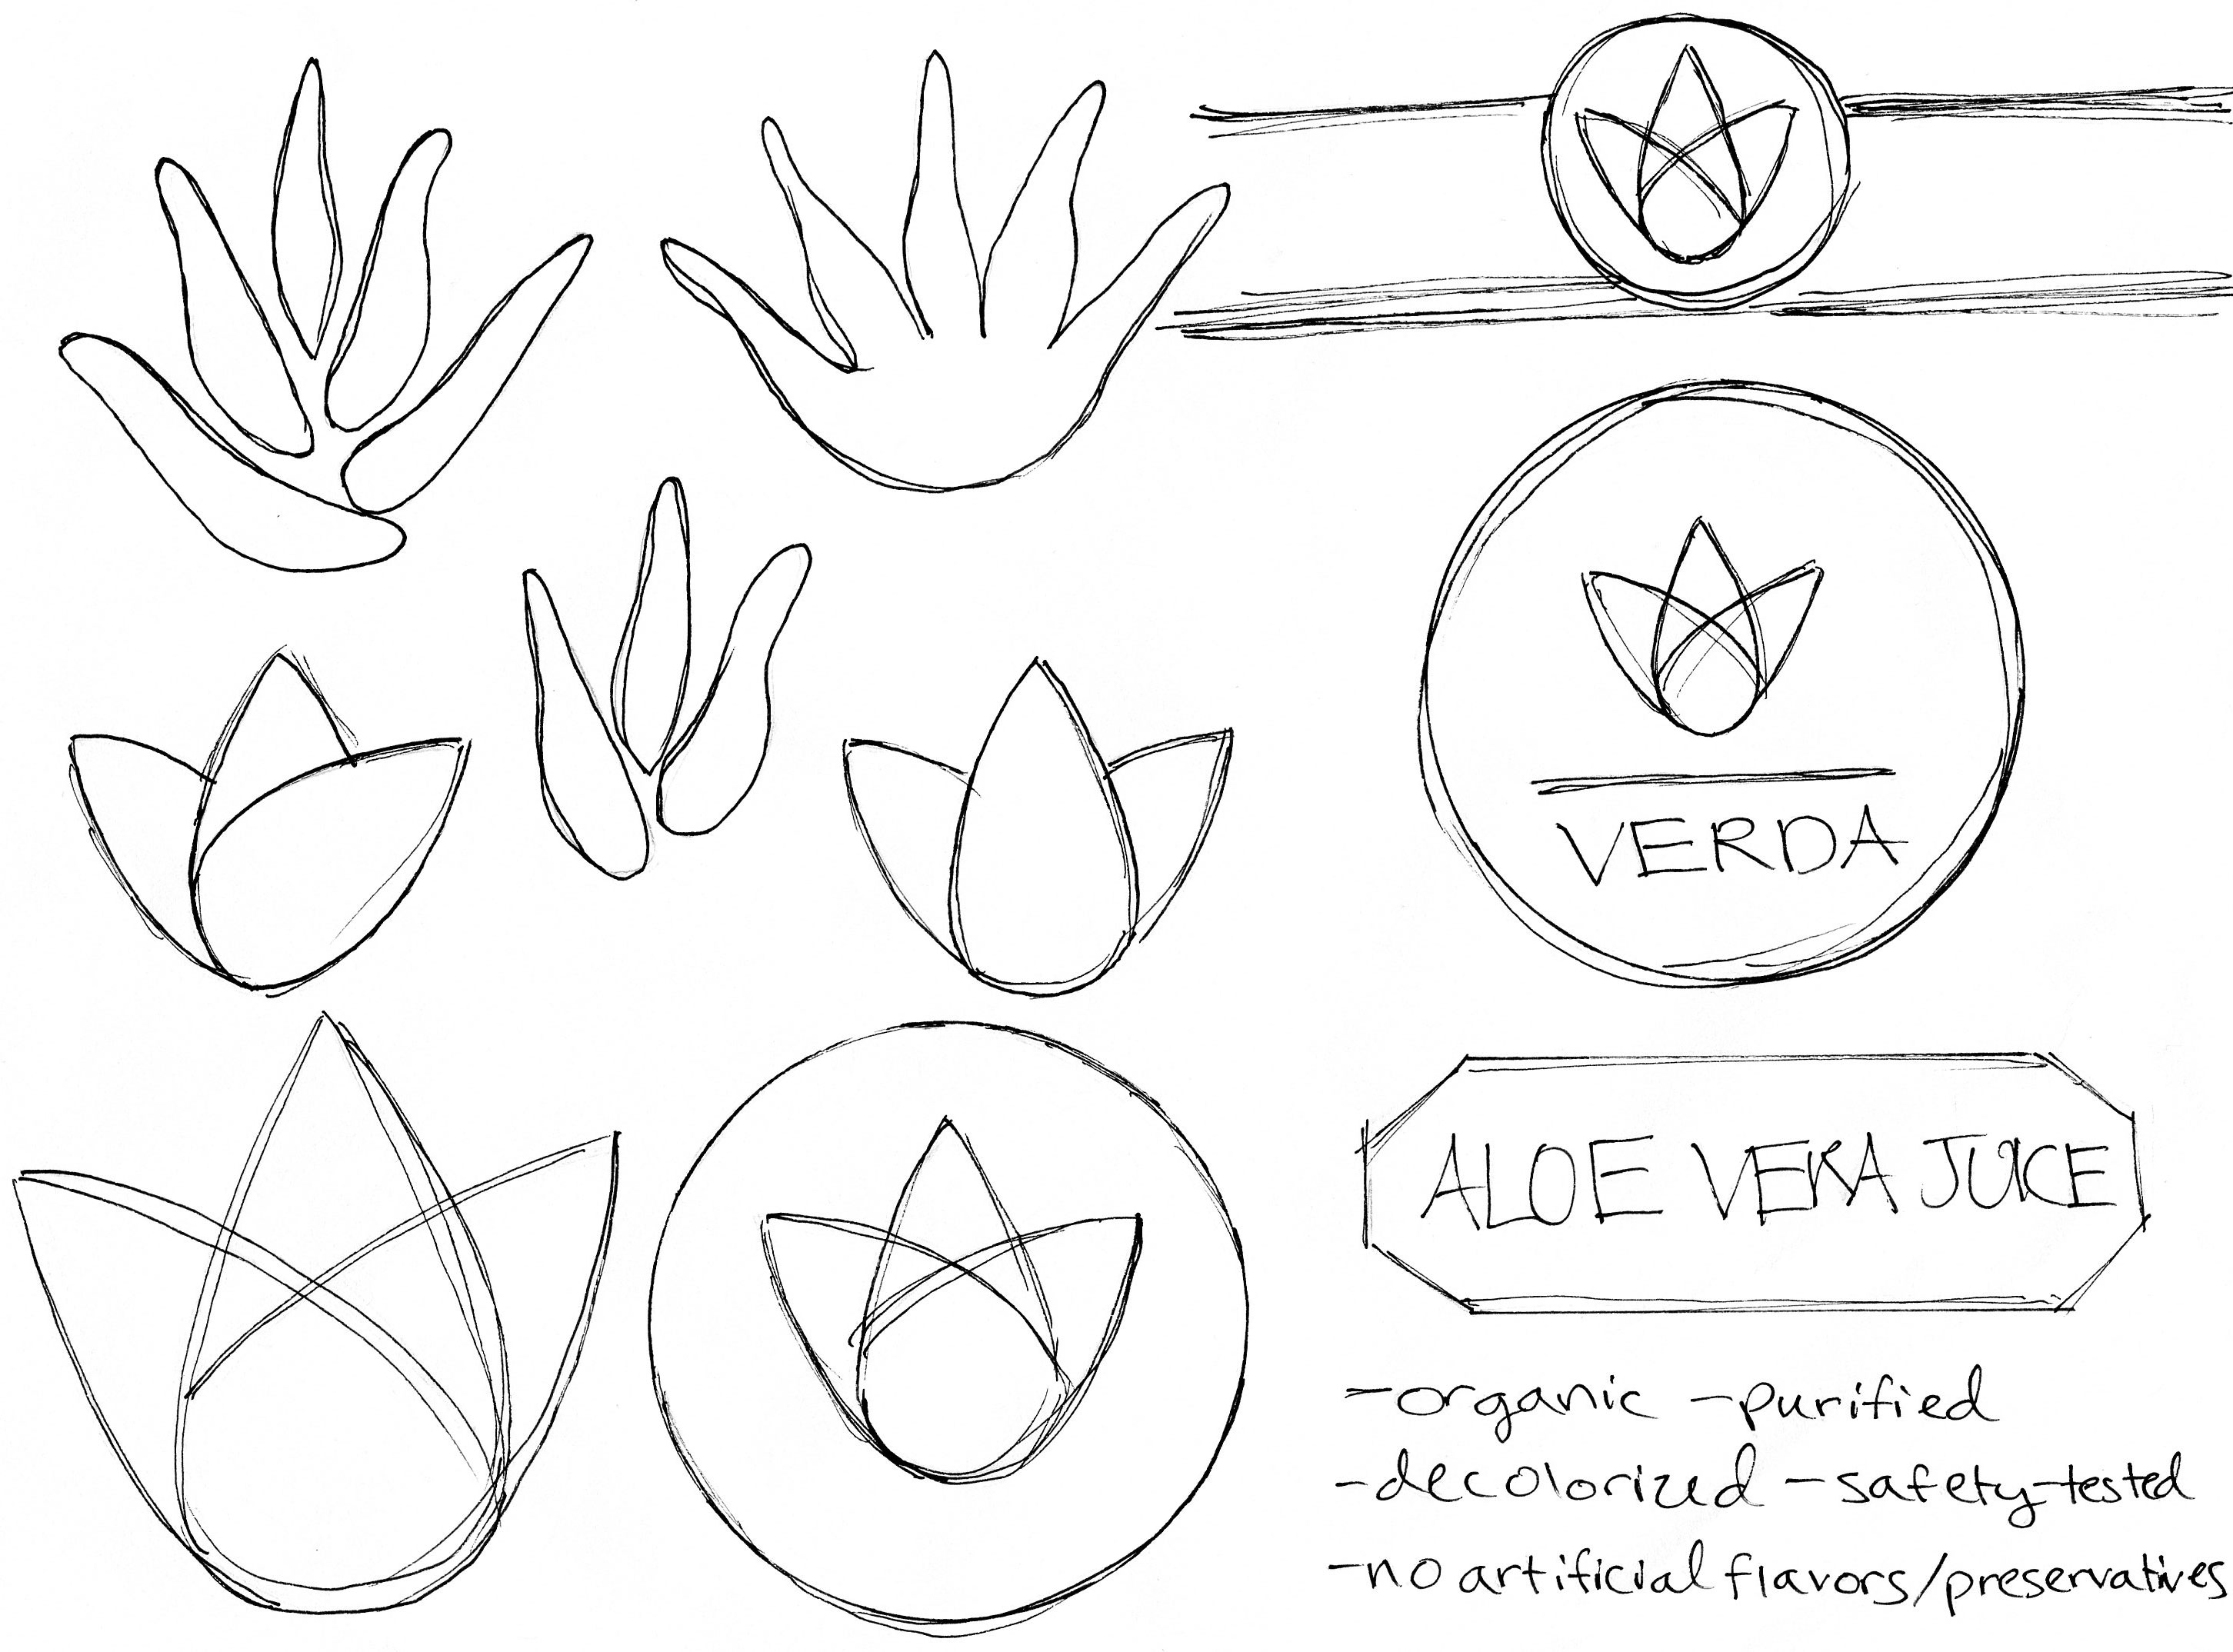 VERDA
ALOE VERA JUICE
-organic -purified
-decolorized -safety-tested
-no artificial flavors/preservatives